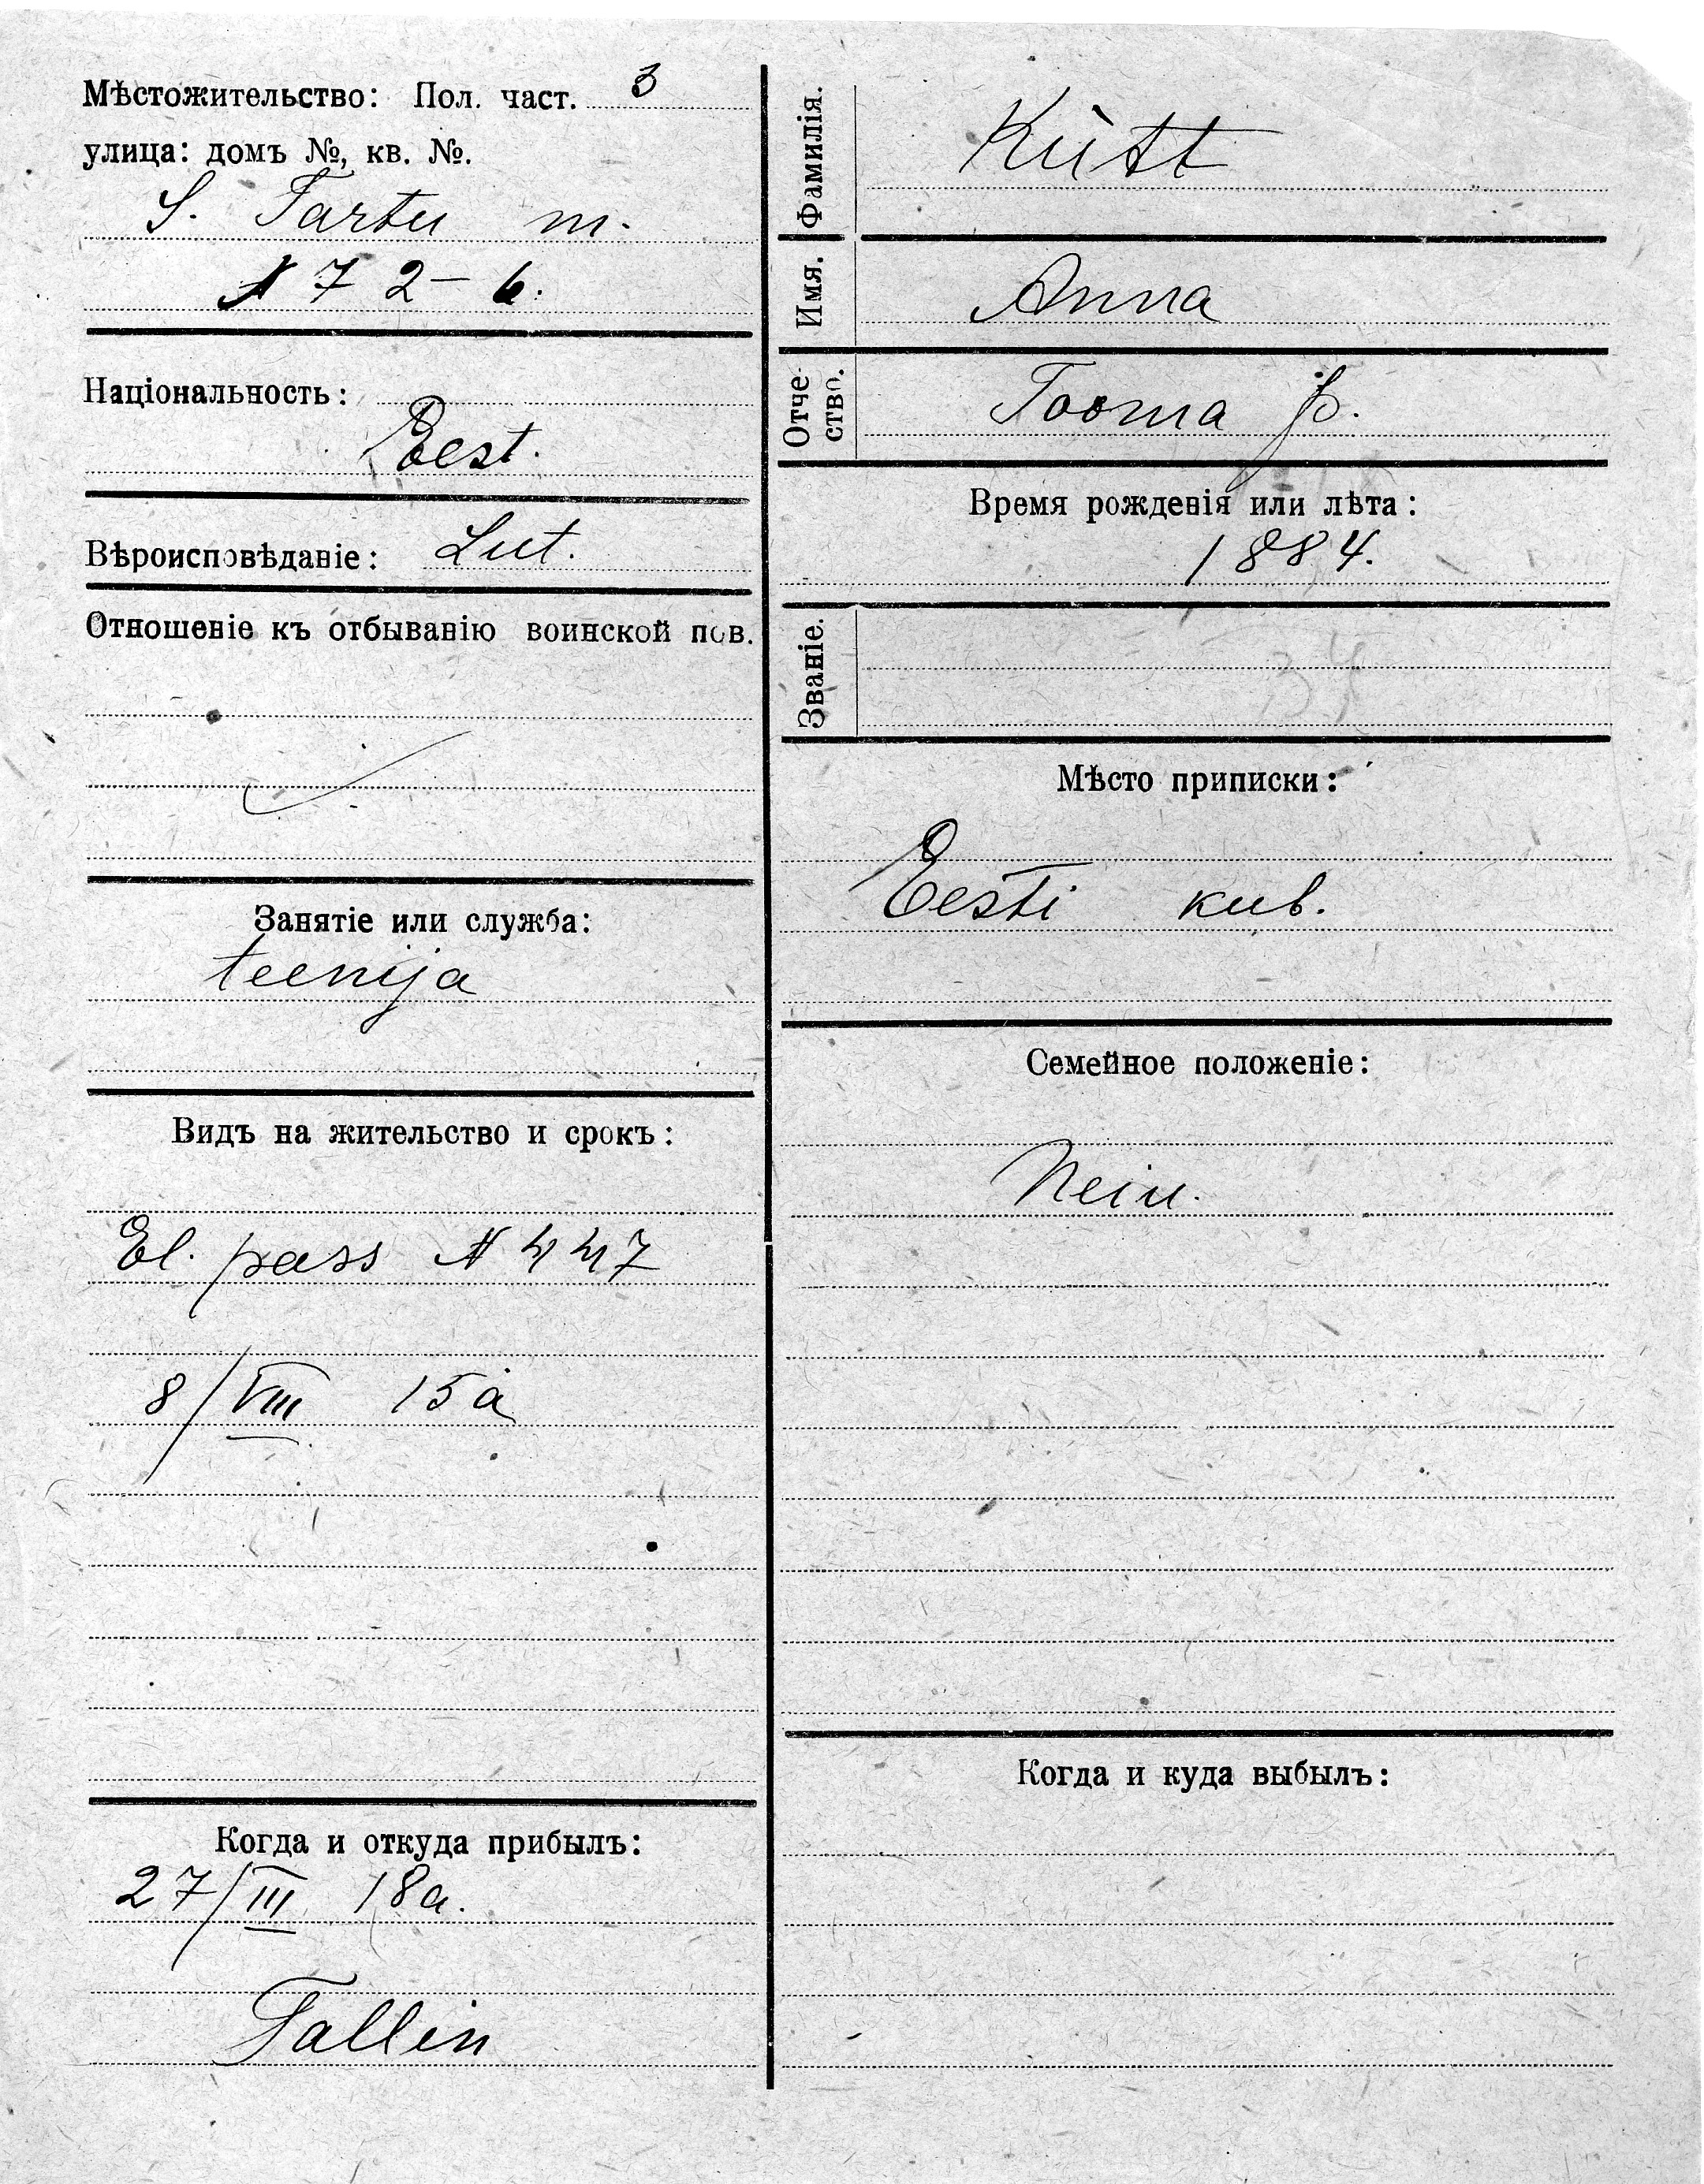 Мѣстожительство: Пол. част. 3
улица: домъ №, кв. №.
S. Tartu m.
N 72-6.
Національность:
Eest.
Вѣроисповѣданіе: Lut.
Отношеніе къ отбыванію воинской пов.
Занятіе или служба:
teenija
Видъ на жительство и срокъ:
El. pass N 447
8/VIII 15 a
Когда и откуда прибылъ:
27/III 18 a.
Tallin
Фамилія. Kütt
Имя. Anna
Отче-
ство. Tooma
Время рожденія или лѣта:
1884.
Званіе.
34
Мѣсто приписки:
Eesti kub.
Семейное положеніе:
Neiu.
Когда и куда выбылъ: